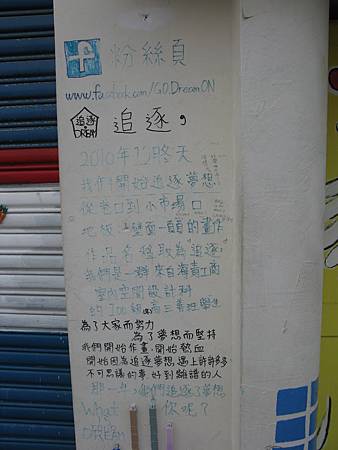 f 粉絲頁
www.facebook.com/GO.DreamON
追逐 DREAM 追逐,
2010年 終天
我們開始追逐夢想
從巷口到小市場口
地板、壁面一頭的畫作
作品名稱取為追逐,
我們是一群來自海青工商
室內空間設計科
的 高三 班學生
為了大家而努力
為了夢想而堅持
我們開始作畫,開始熱血
開始因為追逐夢想,遇上許許多多
不可思議的事,好到離譜的人
那一 ,我們追逐了夢想
What is DREAM
你呢?